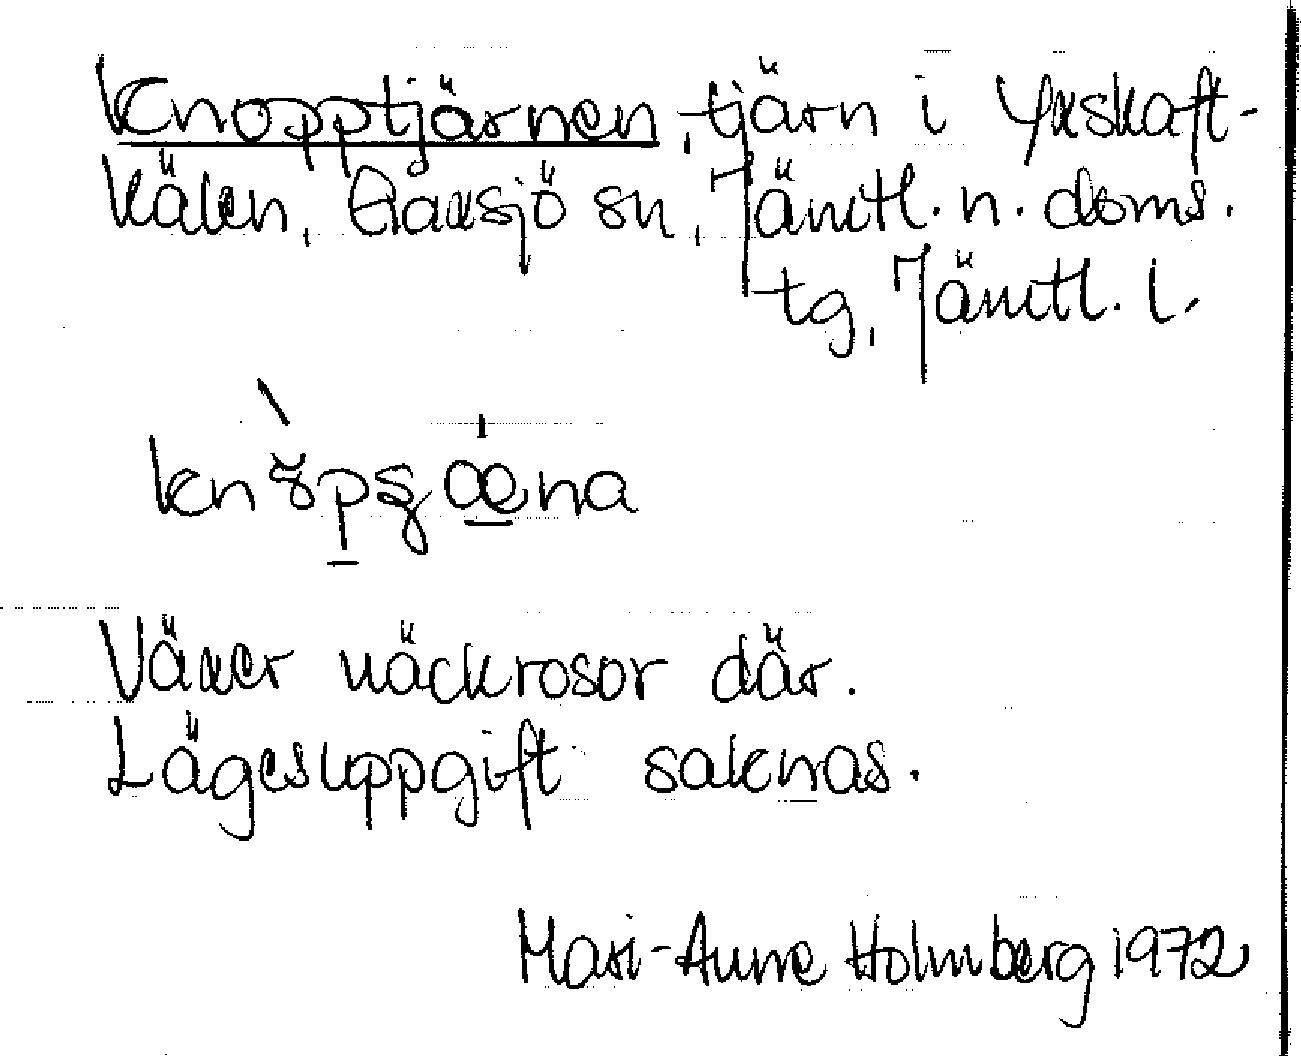 Knopptjärnen, tjärn i Yxskaft-
kälen, Gåxsjö sn, Jämtl. n. doms.
tg, Jämtl. l.
Växer näckrosor där.
Lägesuppgift saknas.
Mari-Anne Holmberg 1972